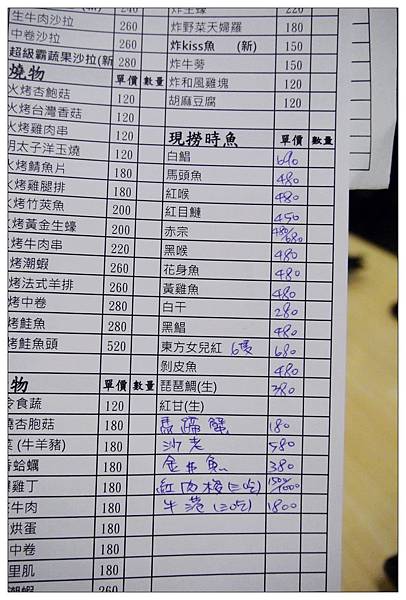 生牛肉沙拉 260
中卷沙拉 260
超級霸蔬果沙拉(新 280
燒物 單價 數量
火烤杏鮑菇 120
火烤台灣香菇 120
火烤雞肉串 120
明太子洋玉燒 120
火烤鯖魚片 180
火烤雞腿排 180
火烤竹莢魚 200
火烤黃金生蠔 200
烤牛肉串 220
烤潮蝦 260
烤法式羊排 260
烤中卷 280
烤鮭魚 280
烤鮭魚頭 520
物 單價 數量
冷食蔬 120
燒杏鮑菇 180
菜(牛羊豬) 180
香蛤蠣 180
雞丁 180
牛肉 180
烘蛋 180
中卷 180
里肌 180
潮蝦 260
炸野菜天婦羅 180
炸kiss魚 (新) 150
炸牛蒡 150
炸和風雞塊 120
胡麻豆腐 120
現撈時魚 單價 數量
白鯧 690
馬頭魚 480
紅喉 480
紅目鰱 450
赤宗 480/680
黑喉 480
花身魚 480
黃雞魚 480
白干 280
黑鯧 480
東方女兒紅 6隻 680
剝皮魚 480
琵琶鯛(生) 380
紅甘(生)
沙老 580
金絲魚 380
牛港(三吃) 1800